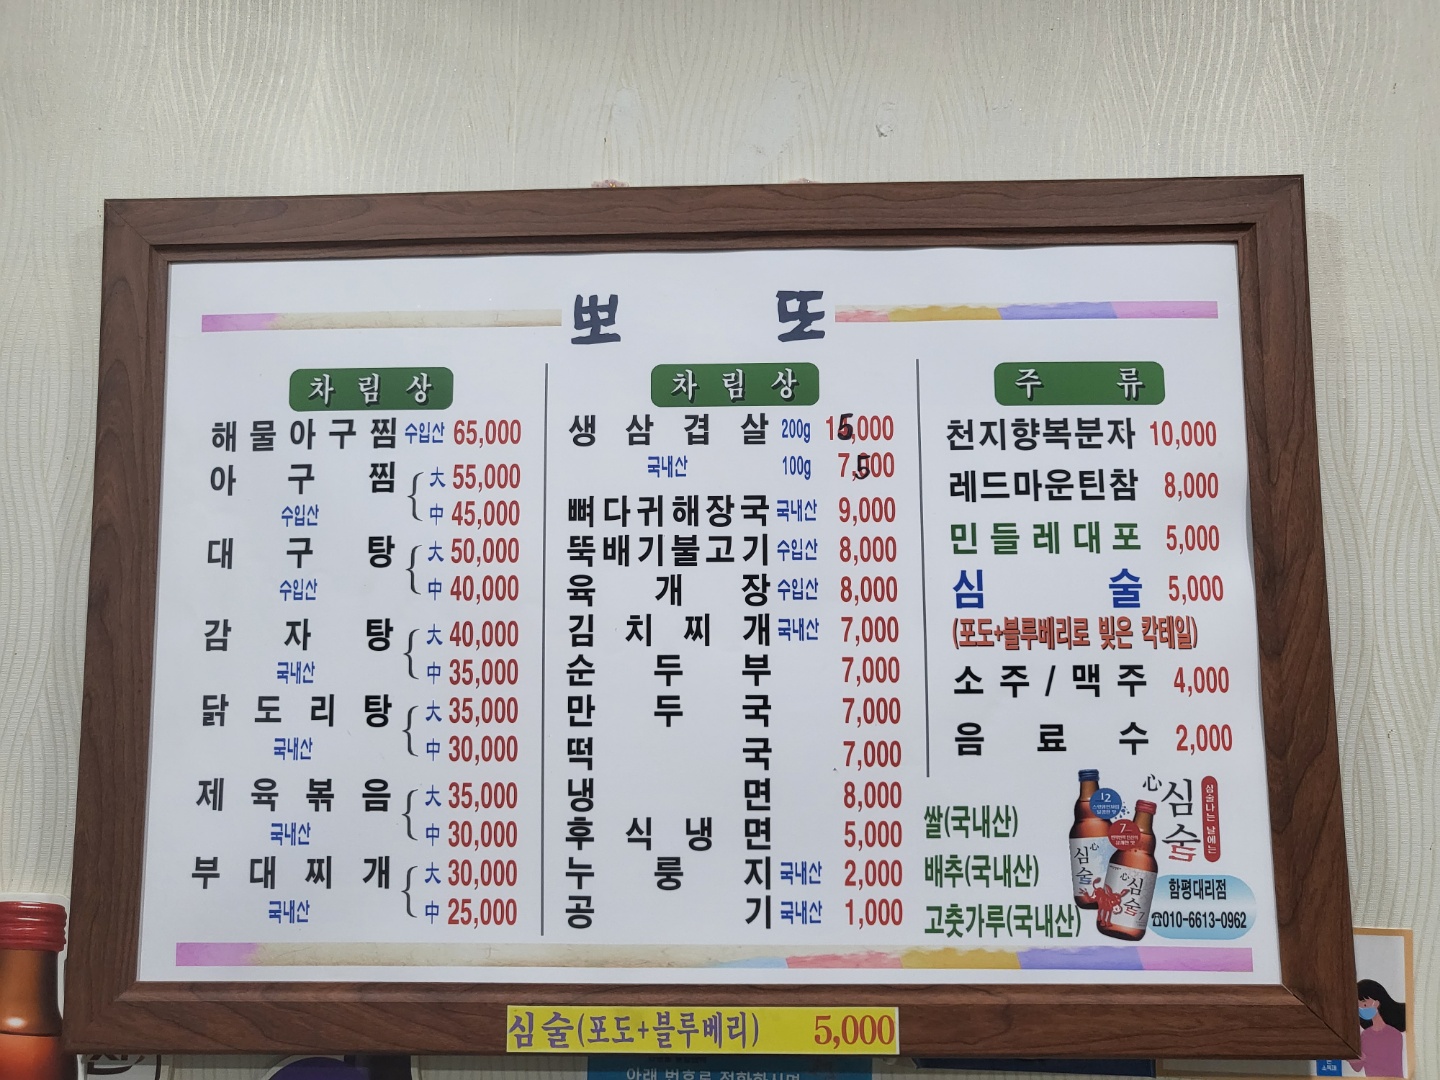 뽀 또
차림상
해물아구찜 수입산 65,000
아구찜 大 55,000
수입산 中 45,000
대구탕 大 50,000
수입산 中 40,000
감자탕 大 40,000
국내산 中 35,000
닭도리탕 大 35,000
국내산 中 30,000
제육볶음 大 35,000
국내산 中 30,000
부대찌개 大 30,000
국내산 中 25,000
차림상
생삼겹살 200g 15,000
국내산 100g 7,500
뼈다귀해장국 국내산 9,000
뚝배기불고기 수입산 8,000
육개장 수입산 8,000
김치찌개 국내산 7,000
순두부 7,000
만두국 7,000
떡국 7,000
냉면 8,000
후식냉면 5,000
누룽지 국내산 2,000
공기 국내산 1,000
주류
천지향복분자 10,000
레드마운틴참 8,000
민들레대포 5,000
심술 5,000
(포도+블루베리로 빚은 칵테일)
소주/맥주 4,000
음료수 2,000
쌀(국내산)
배추(국내산)
고춧가루(국내산)
心 심술
심술나는 날에는
12
7
心 심술
心 심술 7
함평대리점
☎010-6613-0962
심술(포도+블루베리) 5,000